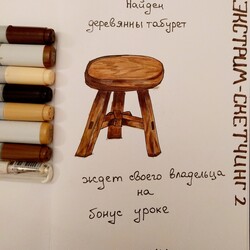 Найден
деревянны табурет
ждет своего владельца
на
бонус уроке
ЭКСТРИМ-СКЕТЧИНГ 2